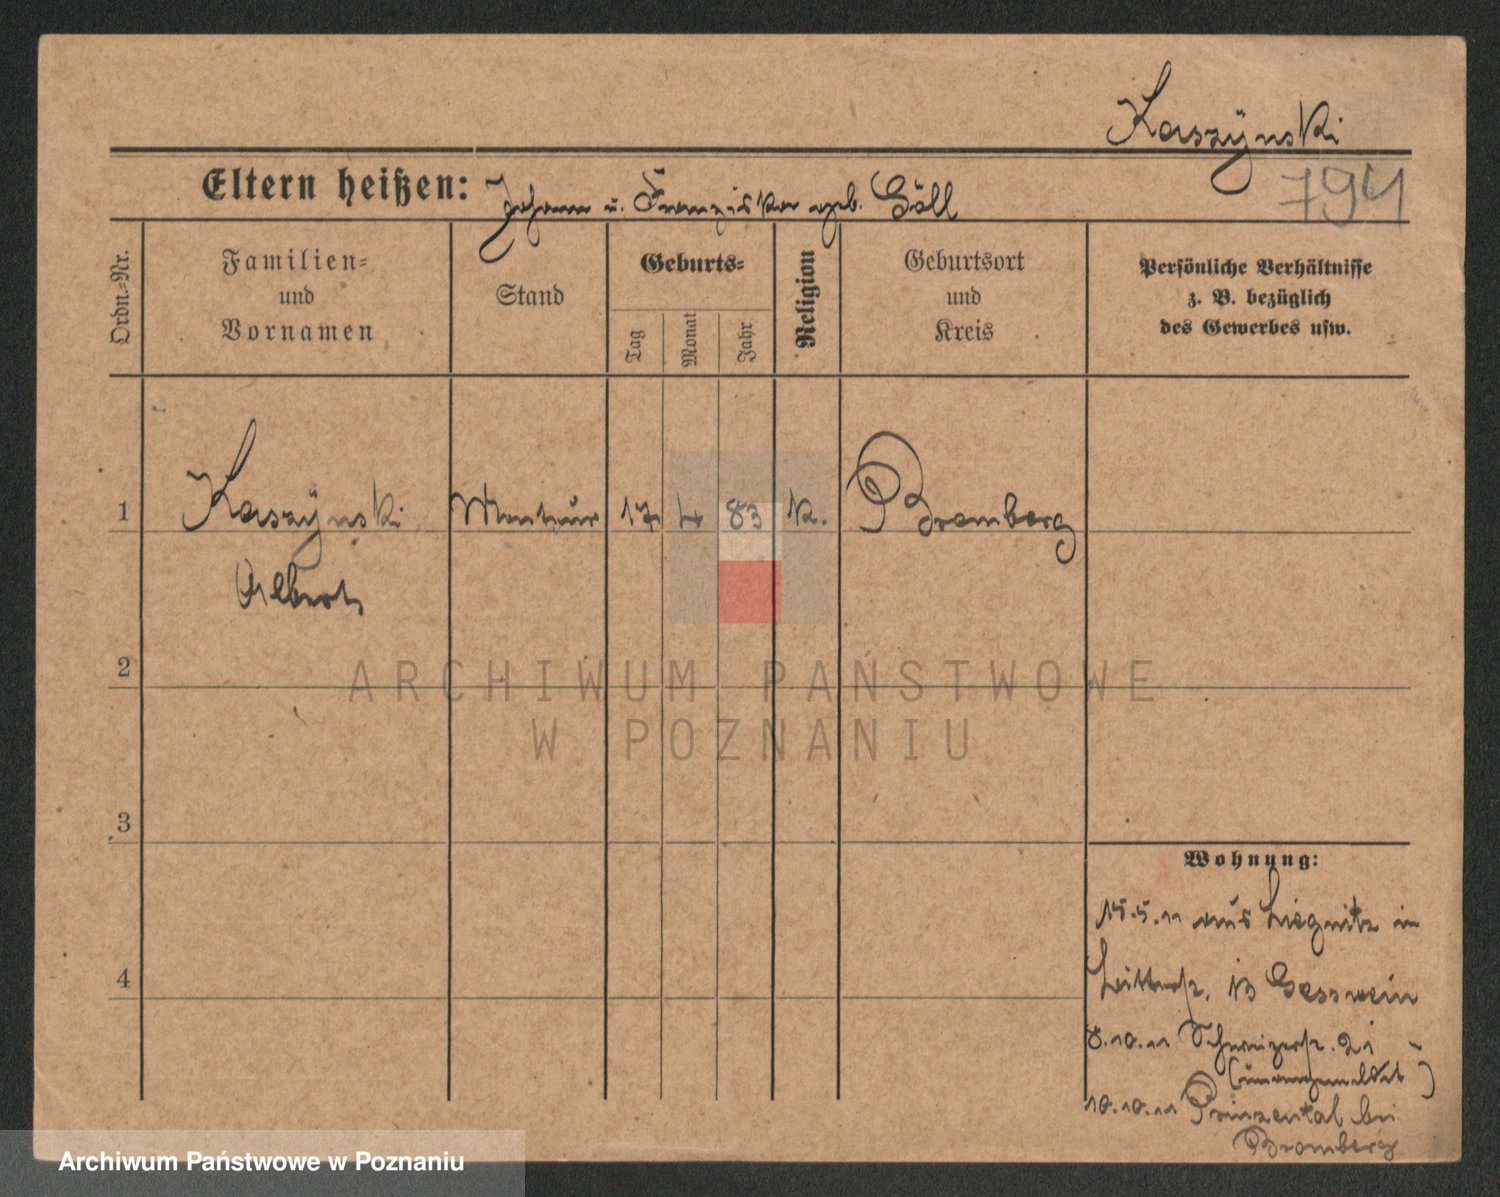 Kaszÿnski
794
Eltern heißen: Johann u. Franziska geb. Göll
Ordn.-Nr.
Familien-
und
Vornamen
Stand
Geburts-
Tag
Monat
Jahr
Religion
Geburtsort
und
Kreis
Persönliche Verhältnisse
z. B. bezüglich
des Gewerbes usw.
1
Kaszÿnski
Monteur
17
4
83
K.
Bromberg
Albert
2
ARCHIWUM PAŃSTWOWE
W POZNANIU
3
Wohnung:
15.5.11 aus Liegnitz in
13 Gesswein
4
8.10.11 Schweizerstr. 21
(unangemeldet)
10.10.11 Prinzental bei
Bromberg
Archiwum Państwowe w Poznaniu